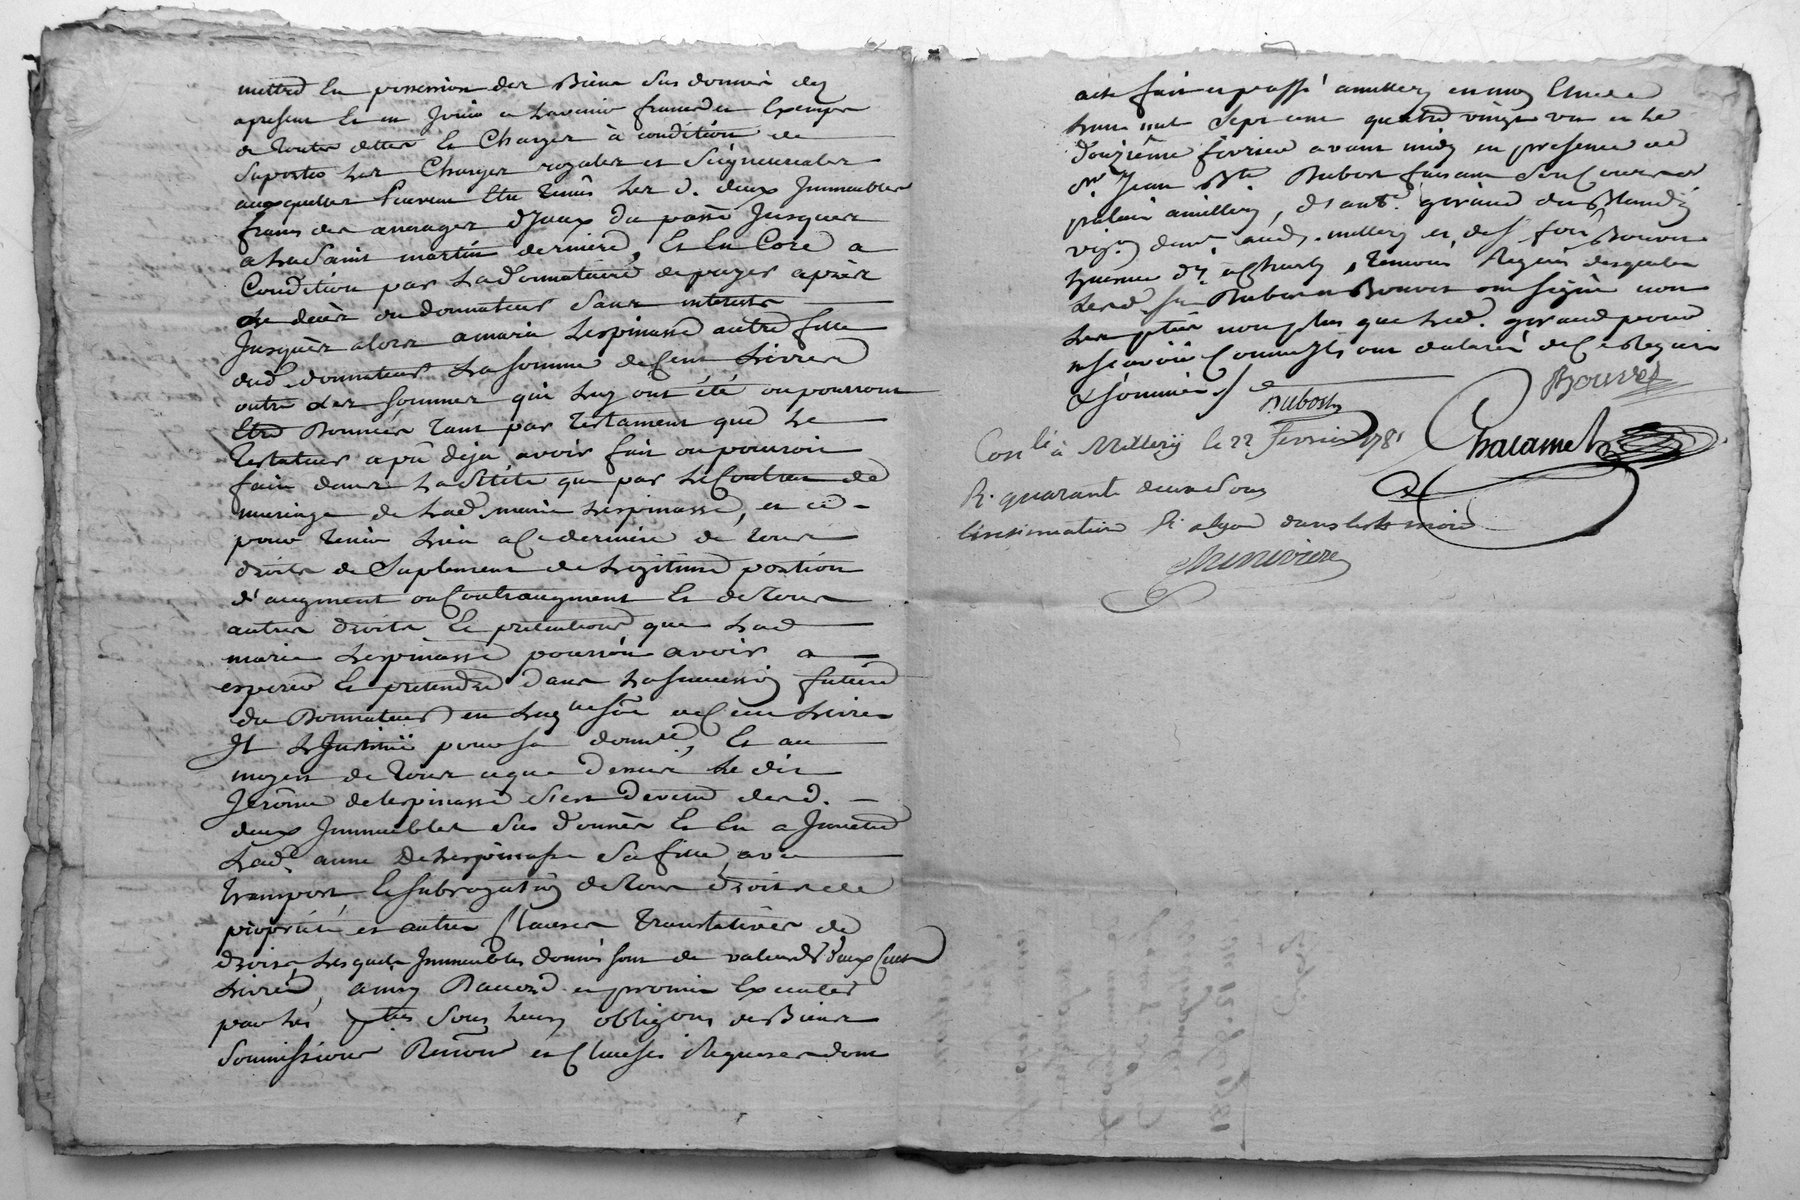 mettre En possession des Biens sus donnés dez
apresent Et en Joüir a Lavenir francs et Exempts
de toutes dettes Et Charges à condition de
suportes Les Charges royales et Seigneuriales
auxquelles peuvent Etre tenûs Les d. deux Immeubles
francs des arrerages d'Jceux du passé Jusques
a La Saint martin derniere, Et En Core a
Condition par La donnataire de payer après
Le decès du donnateur sans interests
Jusques alors a marie Lespinasse autre fille
dud. donnateur La somme de Cent Livres
outre Les sommes qui Luy ont été ou pourront
Etre Donnés tant par testament que Le
testateur a pû deja avoir fait ou pouroit
faire dans La suite que par Le Contrat de
mariage de Lad. marie Lespinasse, et ce
pour tenir Lieu a Ce derniere de tous
droits de Suplement de Legitime portion
d'augment ou Contraugment Et de tous
autres droits Et pretentions que Lad
marie Lespinasse pourroit avoir a
esperer Et pretendre dans La succession future
du Donnateur en Luy
Jl L'Jnstitüe pour sa et au
moyen de tout ce que dessus Le dit
Jerôme delespinasse s'est devetu desd.
deux Jmmeubles sus donnés Et En a Jnvetu
Lad. anne DeLespinasse sa fille, avec
transport, Et subrogation de tous droits de
proprieté et autres Clauses translatives de
droits, Lesquels Jmmeubles donnés sont de valeur de deux Cent
Livres, ainsy Daccord et promis Executer
par Les pties sous Leurs obligons de Biens
Soumissions Renons et Clauses Requises dont
acte fait et passé a millery en mon Etude
L'an mil sept cent quatre vingt un et Le
douzième fevrier avant midy en presence de
sr. Jean Bte. Dubost faisant
a millery, d'ant. giraud du Blandy
vign. demt. aud. millery et de Bouvet
a Charly, temoins Requis desquels
Led. sr. Dubost et Bouvet ont signé non
Les pties non plus que Led. giraud pour
ne scavoir Comme Jls ont déclaré de Ce Requis
& sommés /
Dubost
Bouvet
Chalamel
Conlé à Millery le 22 fevrier 1781
R. quarante deux sous
L'insinuation R. a Lyon dans les 4 mois